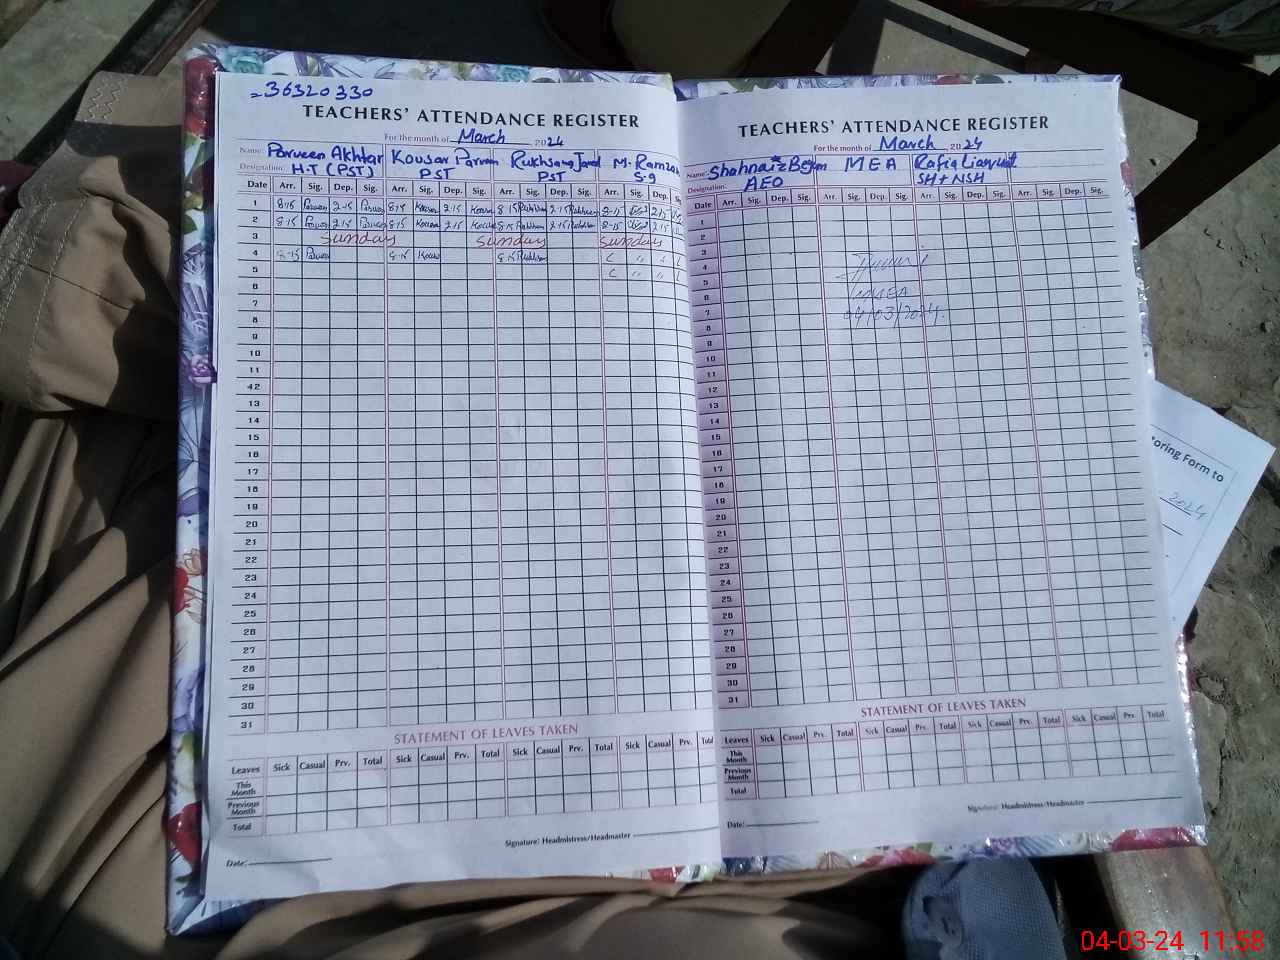 36320330
TEACHERS' ATTENDANCE REGISTER
For the month of March 2024
Name: Parveen Akhtar Kousar Parveen Rukhsana Javed M. Ramzan
Designation: H.T (PST) PST PST S.g
Date Arr. Sig. Dep. Sig. Arr. Sig. Dep. Sig. Arr. Sig. Dep. Sig. Arr. Sig. Dep. Sig
1 8-15 2-15 8-15 Kousar 2-15 Kousar 8-15 2-15 8-15 2-15
2 8-15 2-15 8-15 Kousar 2-15 Kousar 8-15 2-15 8-15 2-15
3 Sunday Sunday Sunday
4 8-15 8-15 8-15 C " "
5 C " "
6
7
8
9
10
11
42
13
14
15
16
17
18
19
20
21
22
23
24
25
26
27
28
29
30
31
STATEMENT OF LEAVES TAKEN
Leaves Sick Casual Prv. Total Sick Casual Prv. Total Sick Casual Prv. Total Sick Casual Prv. Total
This Month
Previous Month
Total
Signature: Headmistress/Headmaster
Date:
TEACHERS' ATTENDANCE REGISTER
For the month of March 2024
Name: Shahnaz Begum MEA Rafiq Liaquat
Designation: AEO SH+NSH
Date Arr. Sig. Dep. Sig. Arr. Sig. Dep. Sig. Arr. Sig. Dep. Sig. Arr. Sig. Dep. Sig.
1
2
3
4
5
6
MEA
7
04/03/2024.
8
9
10
11
12
13
14
15
16
17
18
19
20
21
22
23
24
25
26
27
28
29
30
31
STATEMENT OF LEAVES TAKEN
Leaves Sick Casual Prv. Total Sick Casual Prv. Total Sick Casual Prv. Total Sick Casual Prv. Total
This Month
Previous Month
Total
Signature: Headmistress/Headmaster
Date:
oring Form to
2024
04-03-24 11:58